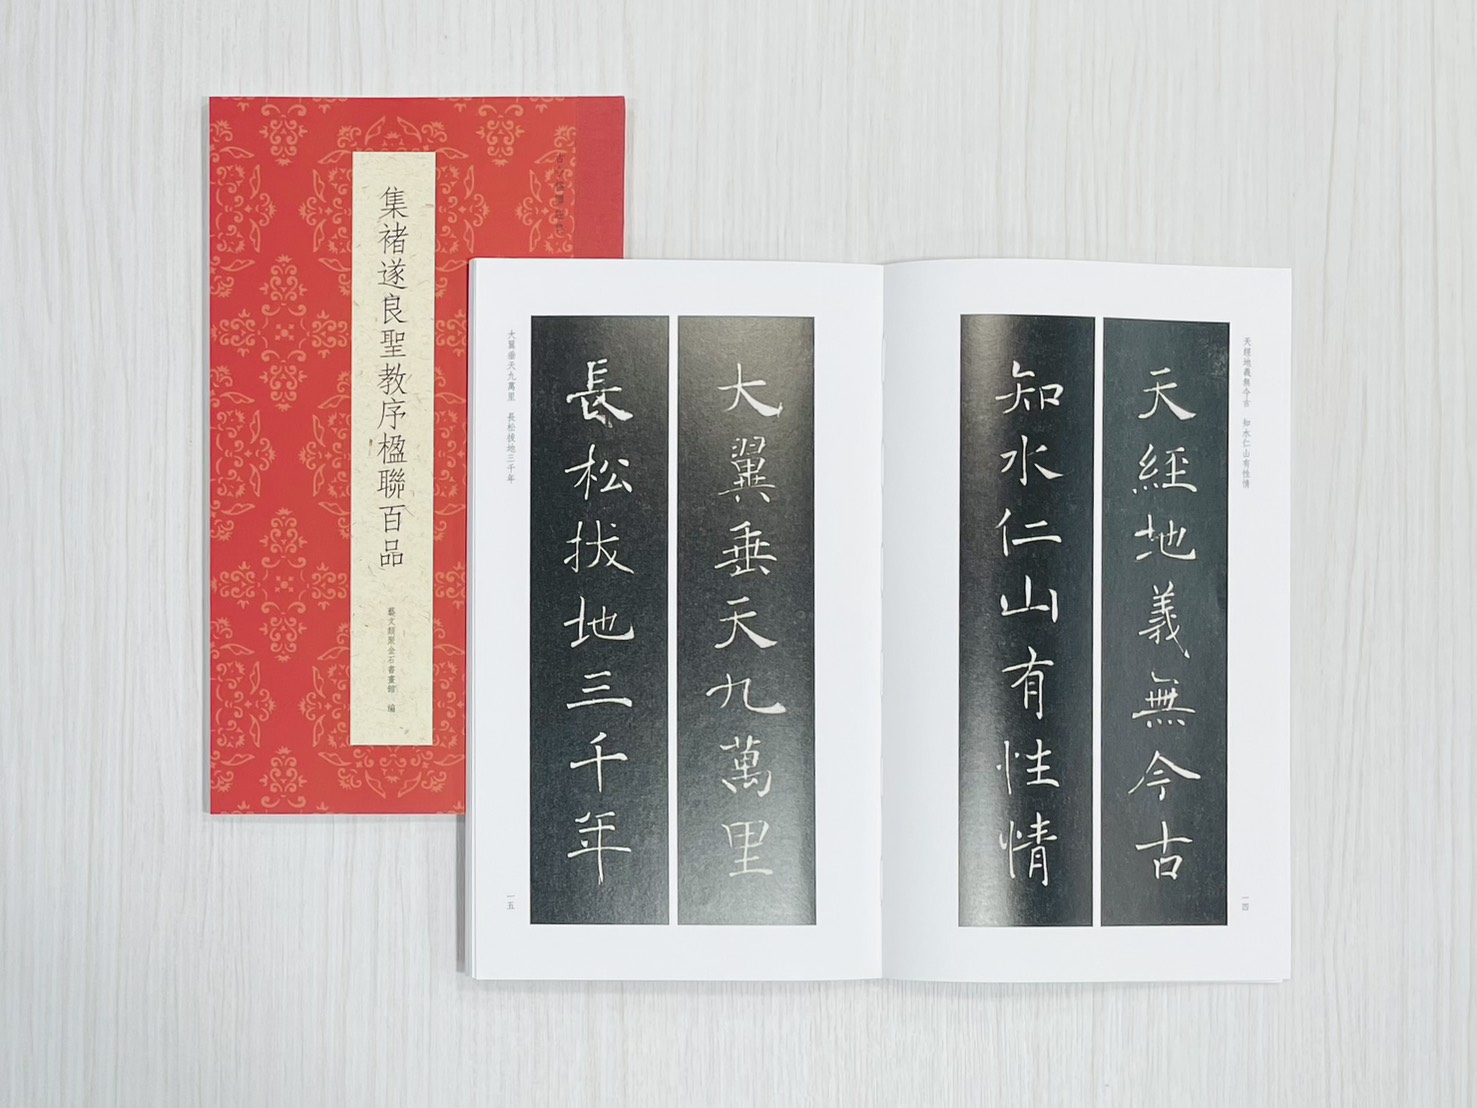 集褚遂良聖教序楹聯百品
藝文類聚金石書畫館 編
天經地義無今古 知水仁山有性情
天經地義無今古
知水仁山有性情
一四
大翼垂天九萬里
長松拔地三千年
大翼垂天九萬里 長松拔地三千年
一五